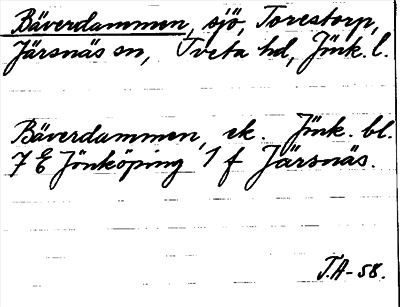 Bäverdammen, sjö, Torestorp,
Järsnäs sn, Tveta hd, Jönk. l.
Bäverdammen, ek. Jönk. bl.
7 E Jönköping 1 f Järsnäs.
T.A-58.